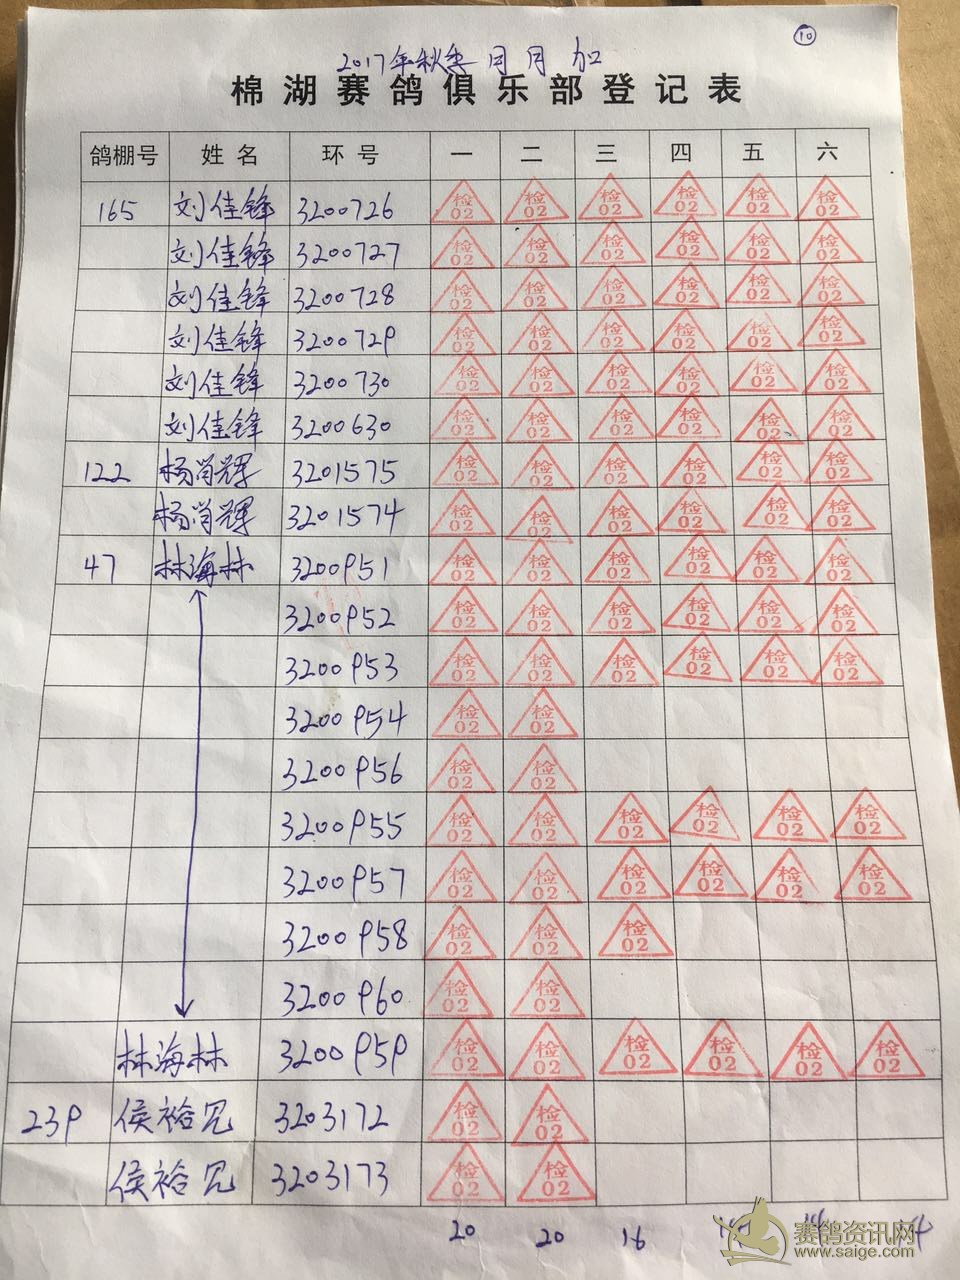 10
2017年秋季 月 月 加
棉湖赛鸽俱乐部登记表
鸽棚号 姓名 环号 一 二 三 四 五 六
165 刘佳锋 3200726 检02 检02 检02 检02 检02 检02
刘佳锋 3200727 检02 检02 检02 检02 检02 检02
刘佳锋 3200728 检02 检02 检02 检02 检02 检02
刘佳锋 3200729 检02 检02 检02 检02 检02 检02
刘佳锋 3200730 检02 检02 检02 检02 检02 检02
刘佳锋 3200630 检02 检02 检02 检02 检02 检02
122 杨肖辉 3201575 检02 检02 检02 检02 检02 检02
杨肖辉 3201574 检02 检02 检02 检02 检02 检02
47 林海林 3200951 检02 检02 检02 检02 检02 检02
3200952 检02 检02 检02 检02 检02 检02
3200953 检02 检02 检02 检02 检02 检02
3200954 检02 检02
3200956 检02 检02
3200955 检02 检02 检02 检02 检02 检02
3200957 检02 检02 检02 检02 检02 检02
3200958 检02 检02 检02
3200960 检02 检02
林海林 3200959 检02 检02 检02 检02 检02 检02
239 侯裕見 3203172 检02 检02
侯裕見 3203173 检02 检02
20 20 16
赛鸽资讯网
www.saige.com